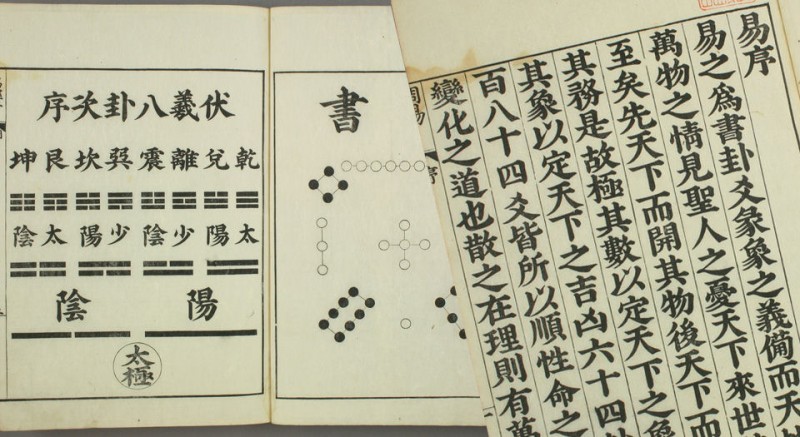 易序
易之爲書卦爻彖象之義備而天
萬物之情見聖人之憂天下來世
至矣先天下而開其物後天下而
其務是故極其數以定天下之象
其象以定天下之吉凶六十四
百八十四爻皆所以順性命之
變化之道也散之在理則有萬
周易
序
書
伏羲八卦次序
乾兌離震巽坎艮坤
太陽少陰少陽太陰
陽陰
太極